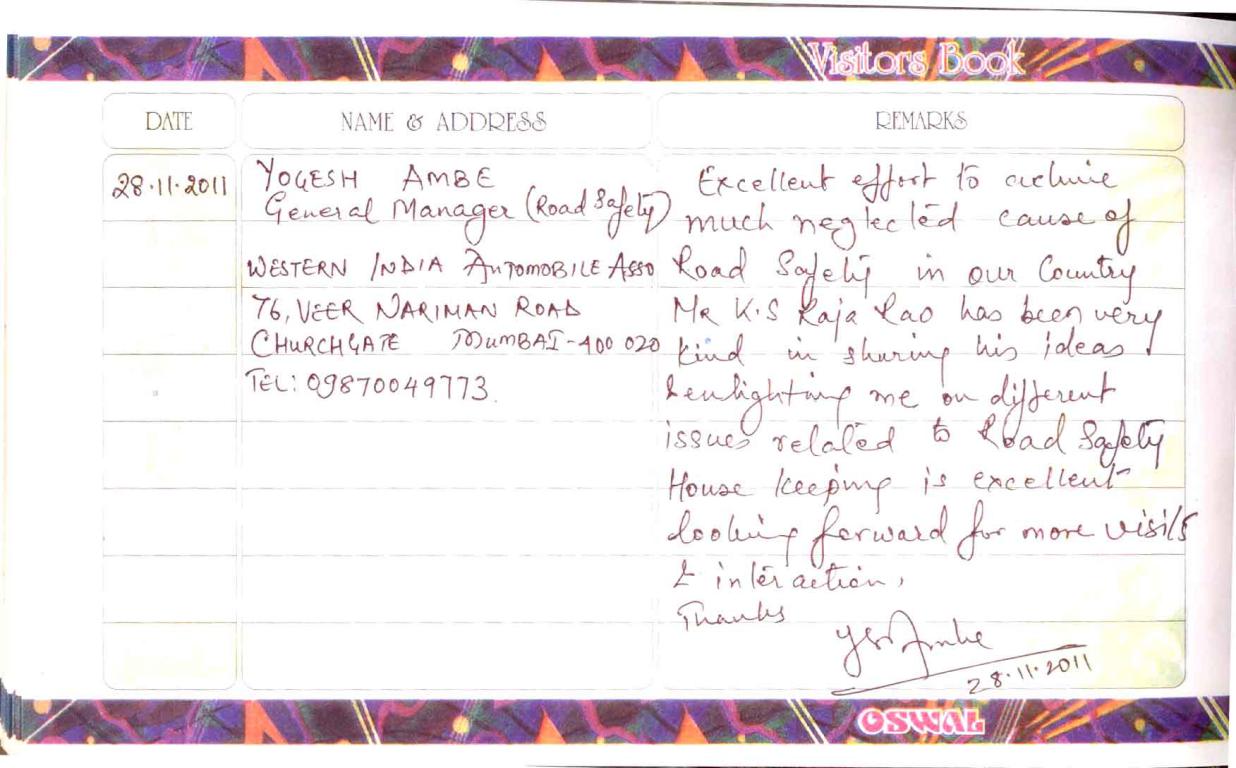 Visitors Book
DATE
NAME & ADDRESS
REMARKS
28.11.2011
YOGESH AMBE
General Manager (Road Safety)
WESTERN INDIA AUTOMOBILE ASSO
76, VEER NARIMAN ROAD
CHURCHGATE MUMBAI-400 020
TEL: 09870049773.
Excellent effort to
much neglected cause of
Road Safety in our Country
Mr K.S Raja Rao has been very
kind in sharing his ideas
& enlighting me on different
issues related to Road Safety
House keeping is excellent
looking forward for more visits
& interaction,
Thanks
28.11.2011
OSWAL